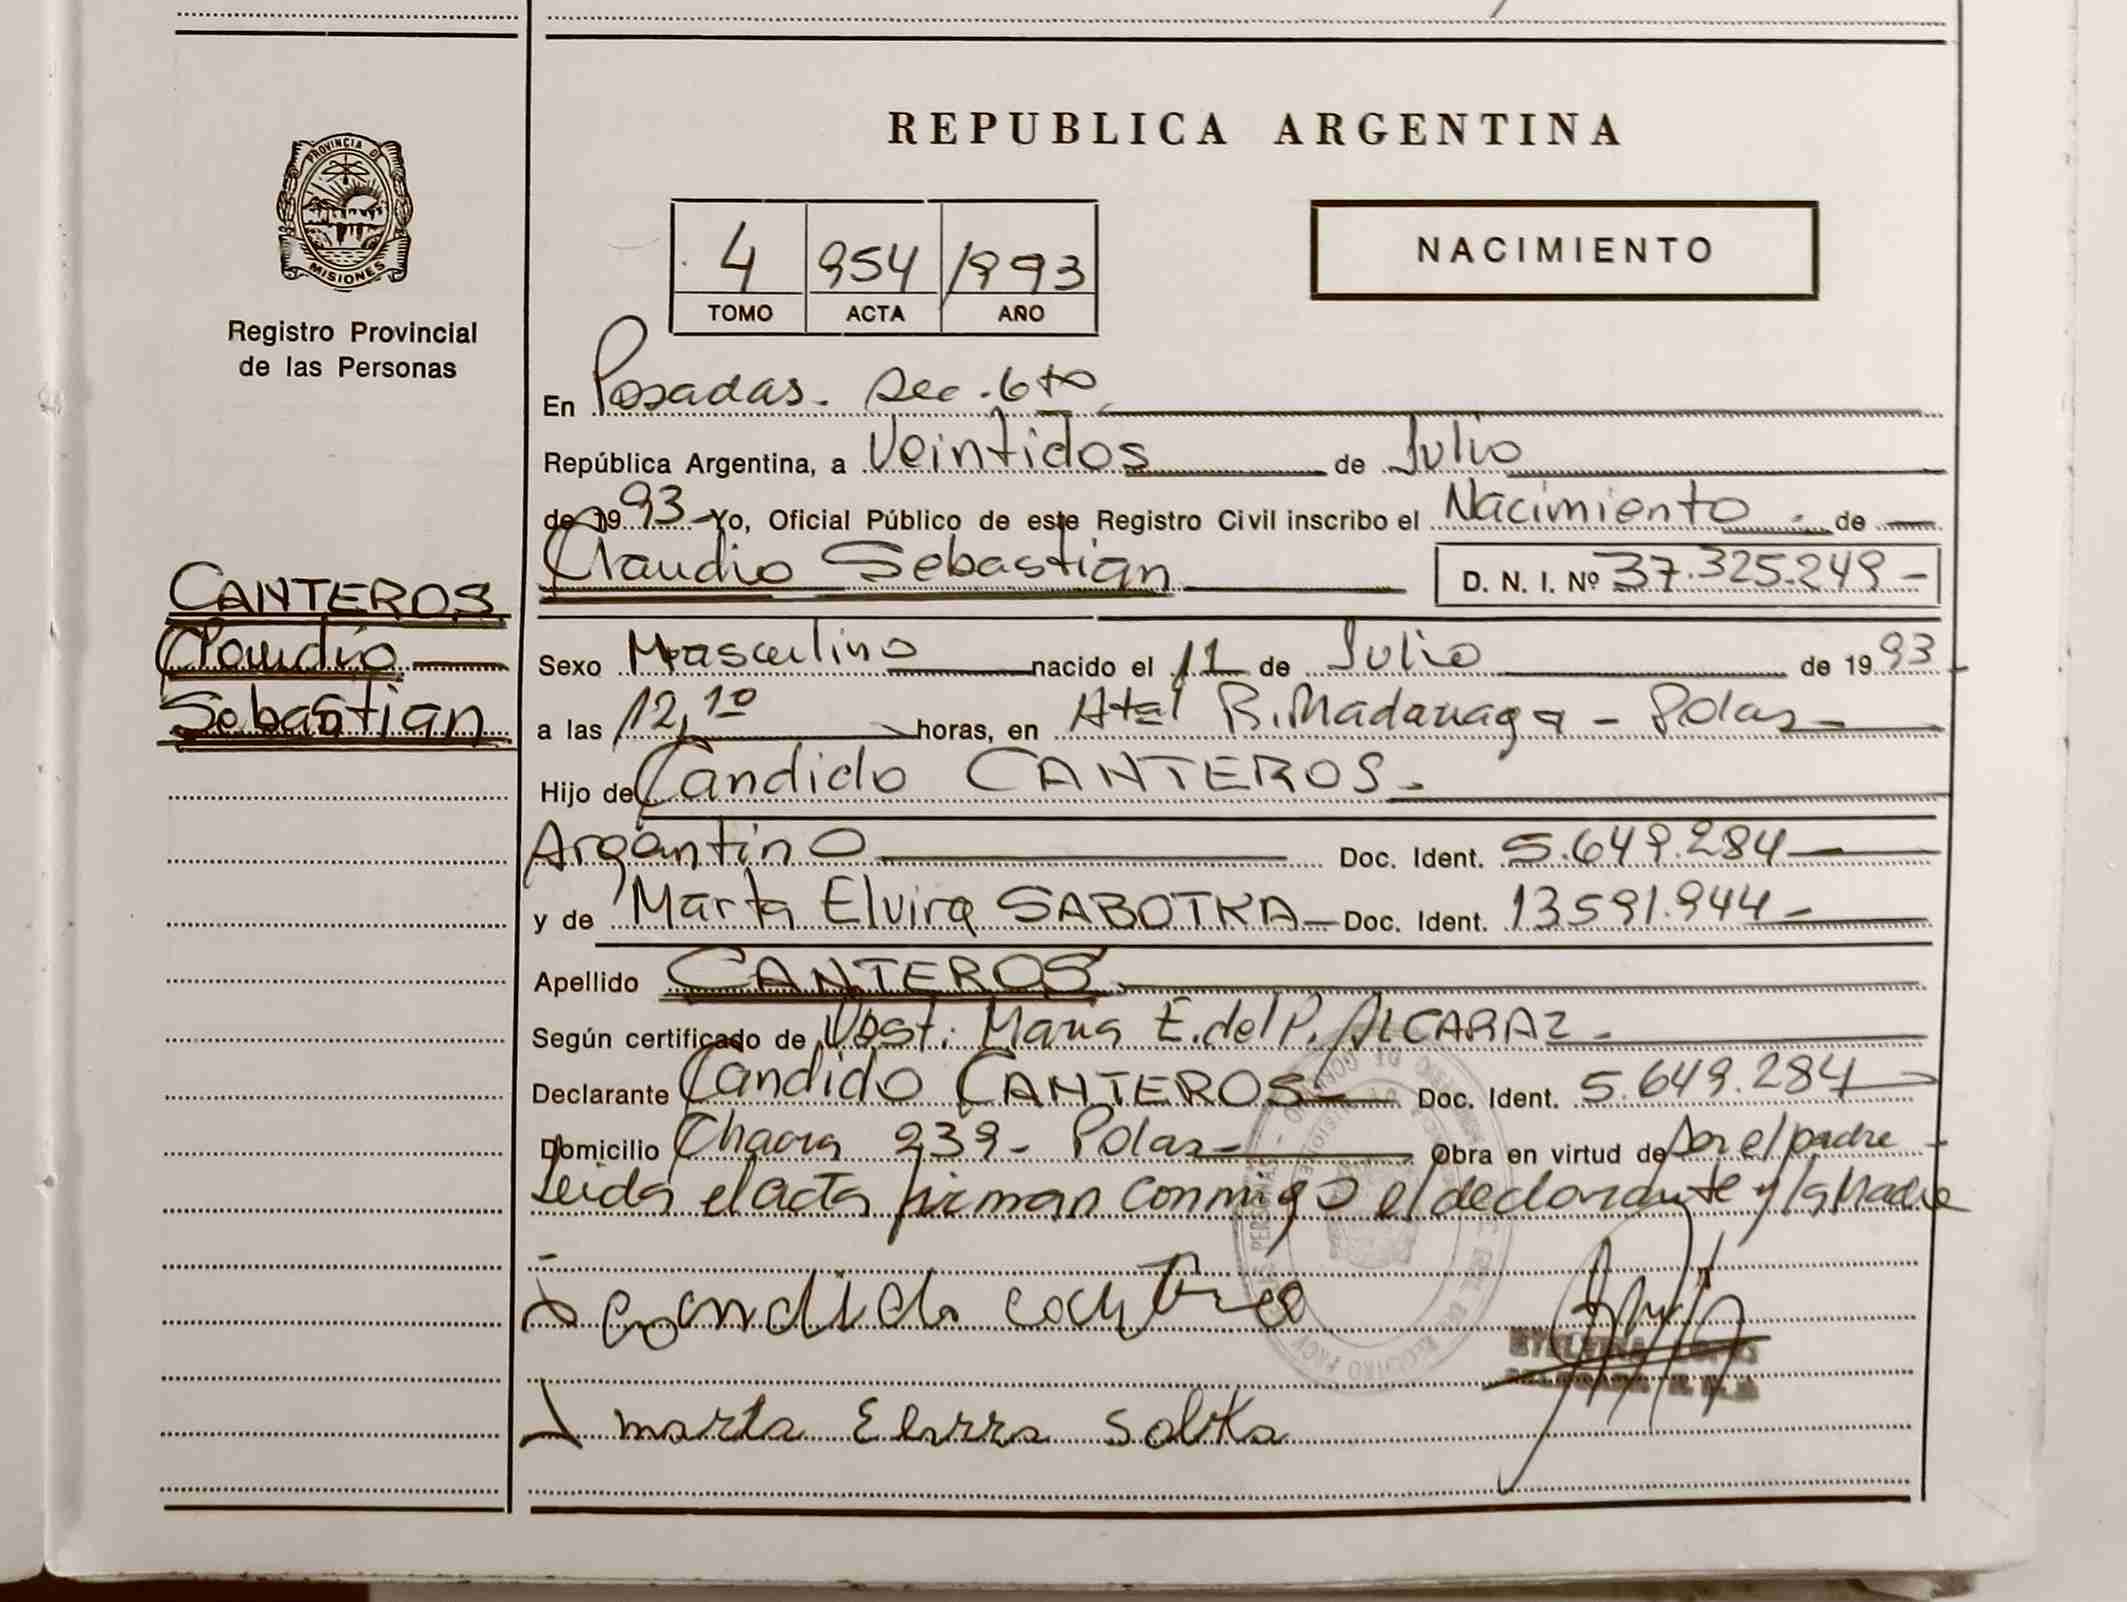 REPUBLICA ARGENTINA
PROVINCIA D
MISIONES
Registro Provincial
de las Personas
4 954 1993
TOMO ACTA AÑO
NACIMIENTO
En Posadas. Sec. 6ta
República Argentina, a Veintidos de Julio
de 1993 Yo, Oficial Público de este Registro Civil inscribo el Nacimiento. de
Claudio Sebastian D. N. I. Nº 37.325.249-
CANTEROS
Claudio
Sebastian
Sexo Masculino nacido el 11 de Julio de 1993
a las 12,10 horas, en R. Madariaga - Pdas
Hijo de Candido CANTEROS.
Argentino Doc. Ident. 5.649.284
y de Marta Elvira SABOTKA Doc. Ident. 13591.944
Apellido CANTEROS
Según certificado de Obst. Maria E. del P. ALCARAZ
Declarante Candido CANTEROS Doc. Ident. 5.649.284
Domicilio Chacra 239- Pdas Obra en virtud de Ser el padre
Leida el acta firman conmigo el declarante y la Madre